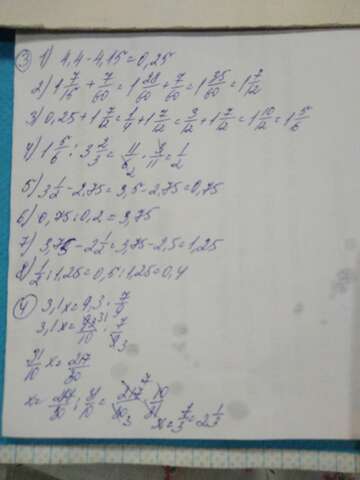 ③ 1) 4,4-4,15=0,25
2) 1 7/15 + 7/60 = 1 28/60 + 7/60 = 1 35/60 = 1 7/12
3) 0,25+1 7/12 = 1/4 + 1 7/12 = 3/12 + 1 7/12 = 1 10/12 = 1 5/6
4) 1 5/6 : 3 2/3 = 11/6 · 3/11 = 1/2
5) 3 1/2 - 2,75 = 3,5 - 2,75 = 0,75
6) 0,75 : 0,2 = 3,75
7) 3,75 - 2 1/2 = 3,75 - 2,5 = 1,25
8) 1/2 : 1,25 = 0,5 : 1,25 = 0,4
④ 3,1x = 9,3 · 7/9
3,1x = 93/10 · 7/9
31/10 x = 217/30
x = 217/30 : 31/10 = 217/30 · 10/31
x = 7/3 = 2 1/3